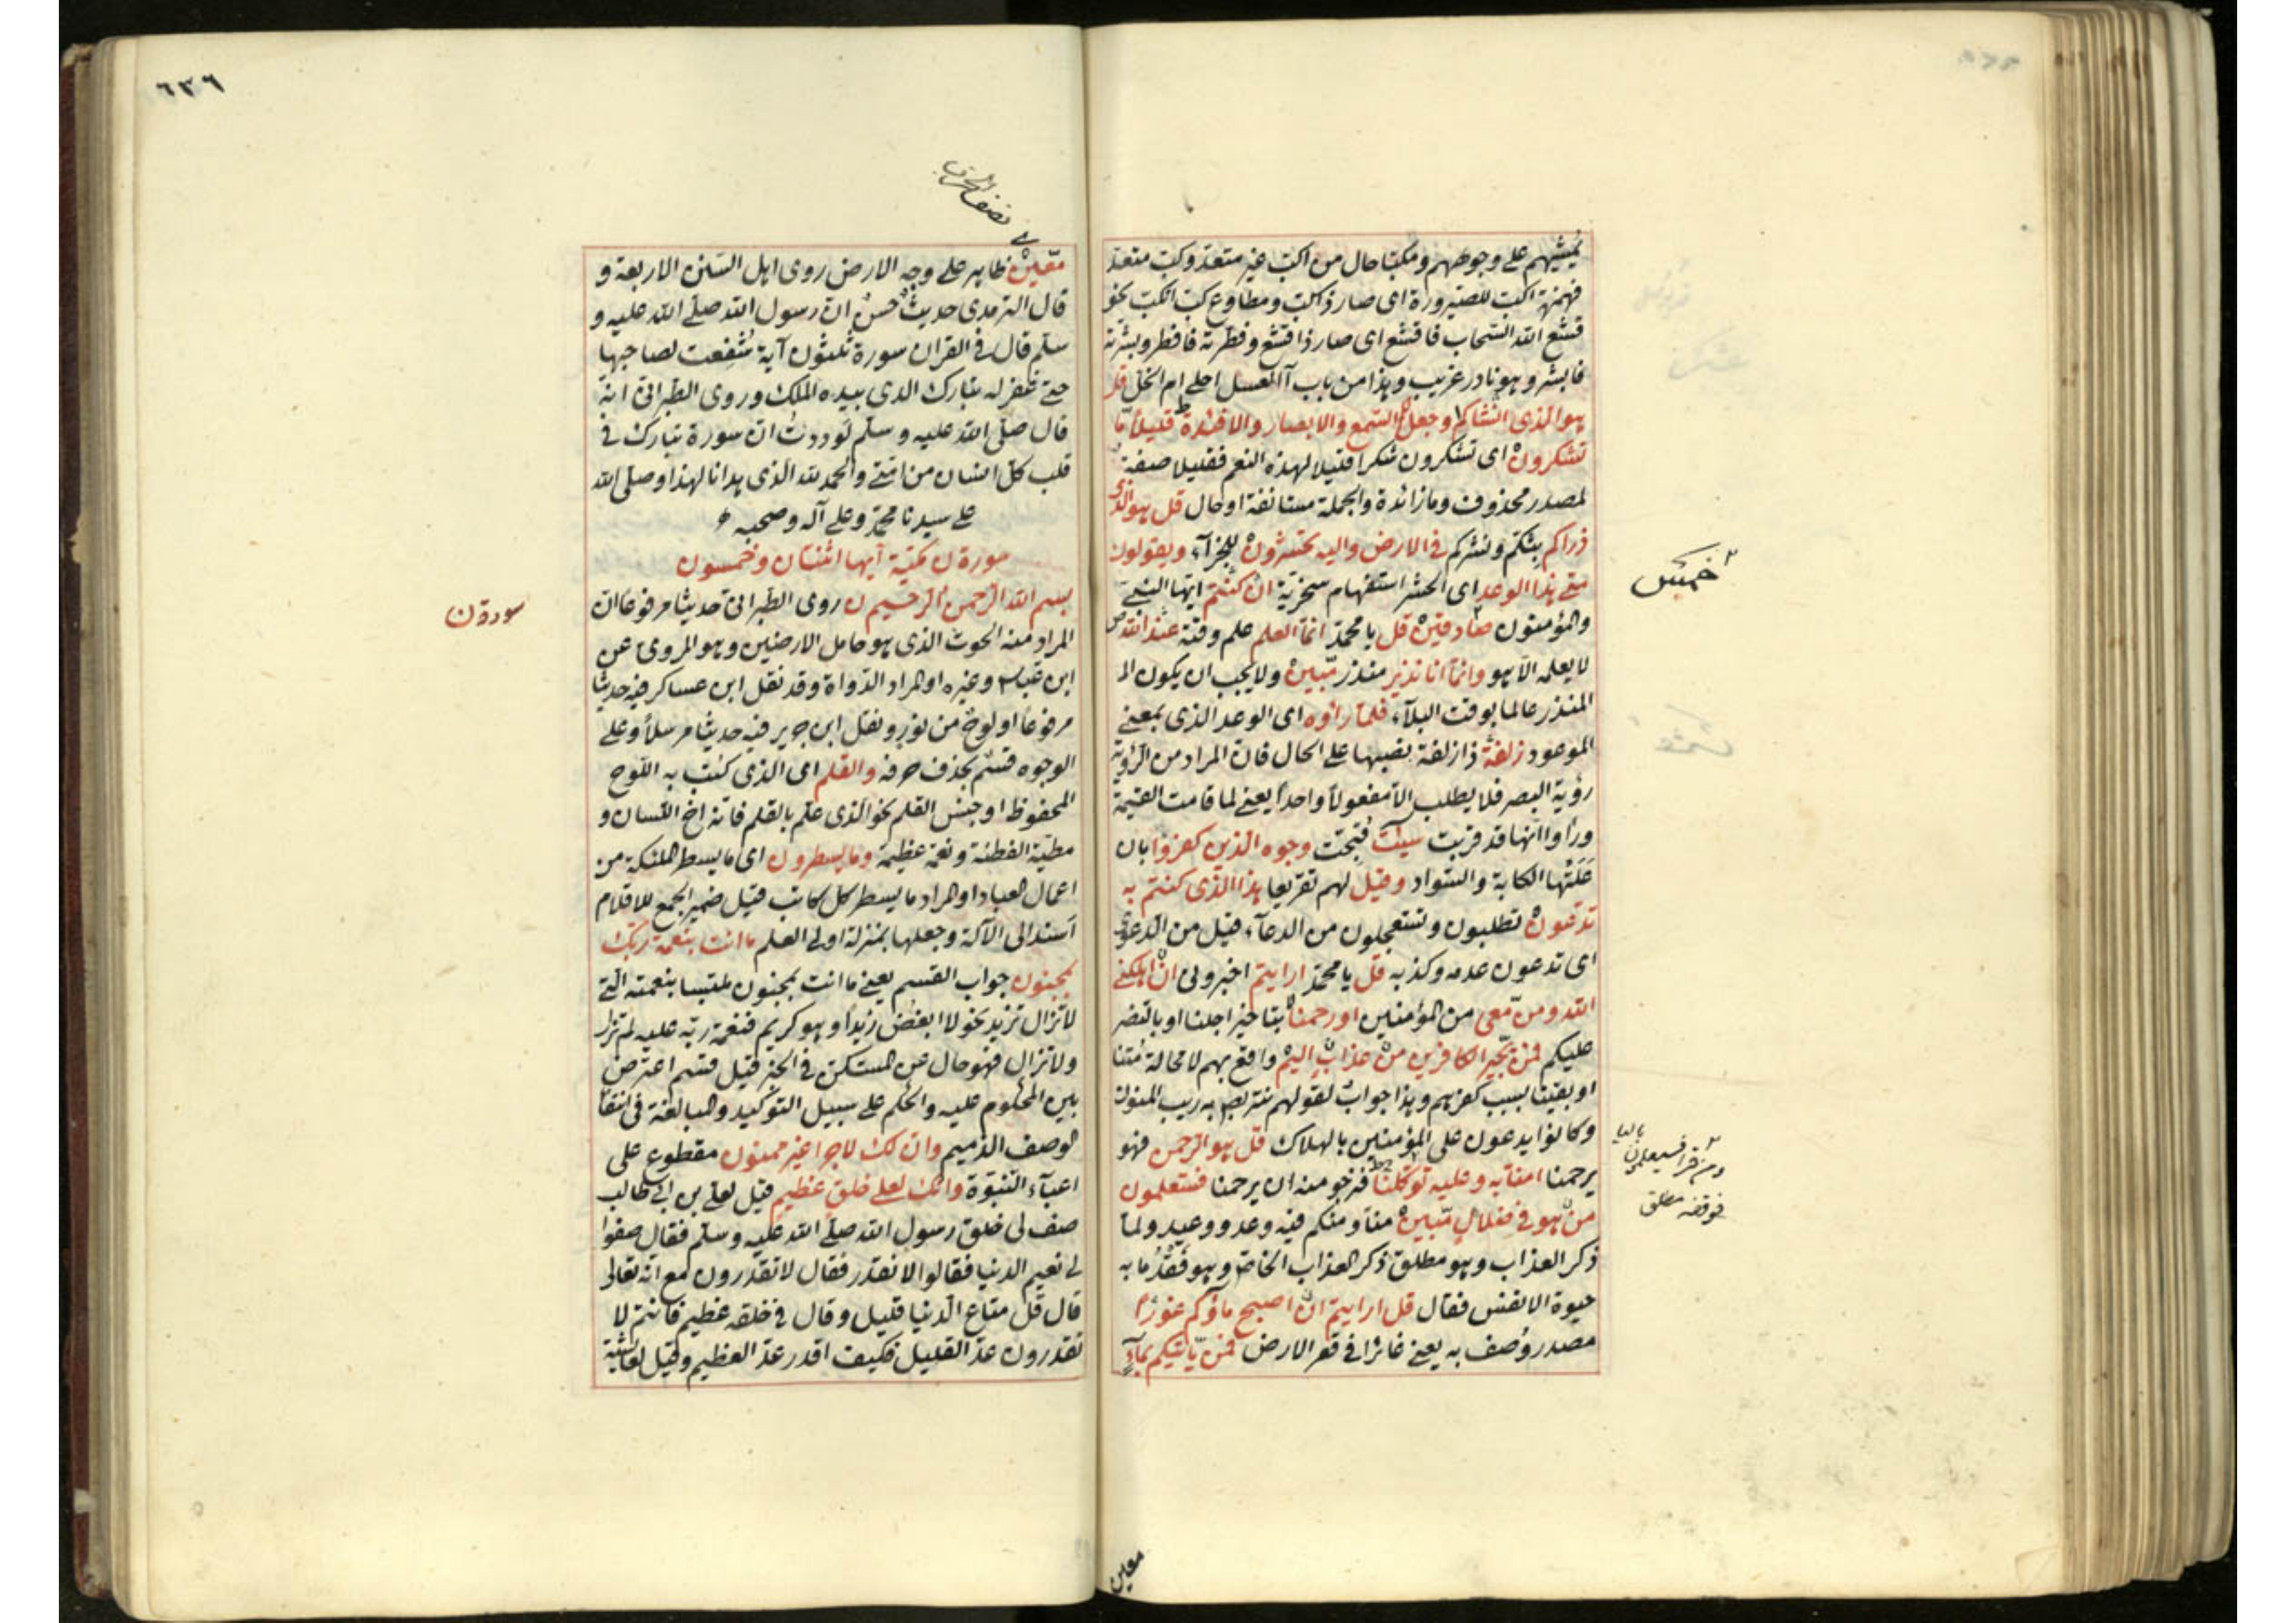 يمشيهم على وجوههم ومكبا حال من اكب غير متعد وكب متعد
فهمزة اكب للصيرورة اى صار ذا كب ومطاوع كب انكب نحو
قشع الله السحاب فاقشع اى صار ذا قشع وفطرته فافطر وبشرته
فابشر وهو نادر غريب وهذا من باب آالعسل احلى ام الخل قل
هو الذى انشاكم وجعل السمع والابصار والافئدة قليلا ما
تشكرون اى تشكرون شكرا قليلا لهذه النعم فقليلا صفة
لمصدر محذوف وما زائدة والجملة مستانفة او حال قل هو الذى
ذراكم بثكم ونشركم فى الارض واليه تحشرون للجزآء ويقولون
متى هذا الوعد اى الحشر استفهام سخرية ان كنتم ايها النبى
خميس
والمؤمنون صادقين قل يا محمد انما العلم علم وقته عند الله
لا يعلمه الا هو وانما انا نذير منذر مبين ولا يجب ان يكون الـ
المنذر عالما بوقت البلآء فلما راوه اى الوعد الذى بمعنى
الموعود زلفة ذا زلفة نصبها على الحال فان المراد من الرؤية
رؤية البصر فلا يطلب الا مفعولا واحدا يعنى لما قامت القيمة
وراوا انها قد قربت سيئت قبحت وجوه الذين كفروا بان
علتها الكابة والسواد وقيل لهم تقريعا هذا الذى كنتم به
تدعون تطلبون وتستعجلون من الدعآء قيل من الدعوى
اى تدعون عدمه وكذبه قل يا محمد ارايتم اخبرونى ان اهلكنى
الله ومن معى من المؤمنين او رحمنا بتاخير اجلنا او بالنصر
عليكم فمن يجير الكافرين من عذاب اليم واقع بهم لا محالة متنا
او بقينا بسبب كفرهم وهذا جواب لقولهم نتربص به ريب المنون
وكانوا يدعون على المؤمنين بالهلاك قل هو الرحمن فهو
يرحمنا امنا به وعليه توكلنا فنرجو منه ان يرحمنا فستعلمون
ومن قرا فسيعلمون بالياء
فوقفه مطلق
من هو فى ضلال مبين منا ومنكم فيه وعد ووعيد ولما
ذكر العذاب وهو مطلق ذكر العذاب الخاص وهو فقد ما به
حيوة الانفس فقال قل ارايتم ان اصبح ماؤكم غورا
مصدر وصف به يعنى غائرا فى قعر الارض فمن ياتيكم بمآء
معين
٦٣٦
نصف الحزب
معين ظاهر على وجه الارض روى اهل السنن الاربعة و
قال الترمدى حديث حسن ان رسول الله صلى الله عليه و
سلم قال فى القران سورة ثلثون آية شفعت لصاحبها
حتى غفر له تبارك الذى بيده الملك وروى الطبرانى انه
قال صلى الله عليه وسلم لوددت ان سورة تبارك فى
قلب كل انسان من امتى والحمد لله الذى هدانا لهذا وصلى الله
على سيدنا محمد وعلى آله وصحبه
سورة ن مكية آيها اثنتان وخمسون
سورة ن
بسم الله الرحمن الرحيم ن روى الطبرانى حديثا مرفوعا ان
المراد منه الحوت الذى هو حامل الارضين وهو المروى عن
ابن عباس وغيره او المراد الدواة وقد نقل ابن عساكر فيه حديثا
مرفوعا او لوح من نور ونقل ابن جرير فيه حديثا مرسلا وعلى
الوجوه قسم بحذف حرفه والقلم اى الذى كتب به اللوح
المحفوظ او جنس القلم نحو الذى علم بالقلم فانه اخ اللسان و
مطية الفطنة ونعمة عظيمة وما يسطرون اى ما يسطر الملئكة من
اعمال العباد او المراد ما يسطر كل كاتب قيل ضمير الجمع للاقلام
اسند الى الآلة وجعلها بمنزلة اولى العلم ما انت بنعمة ربك
بمجنون جواب القسم يعنى ما انت بمجنون ملتبسا بنعمته التى
لا تزال تزيد نحو لا ابغض زيدا وهو كريم فنعمة ربه عليه لم تزل
ولا تزال فهو حال عن المستكن فى الخبر قيل قسم اعترض
بين المحكوم عليه والحكم على سبيل التوكيد والمبالغة فى انتفا
الوصف الذميم وان لك لاجرا غير ممنون مقطوع على
اعبآء النبوة وانك لعلى خلق عظيم قيل لعلى بن ابى طالب
صف لى خلق رسول الله صلى الله عليه وسلم فقال صفوا
لى نعيم الدنيا فقالوا لا نقدر فقال لا تقدرون مع انه تعالى
قال قل متاع الدنيا قليل وقال فى خلقه عظيم فانتم لا
تقدرون عد القليل فكيف اقدر عد العظيم وقيل لعائشة